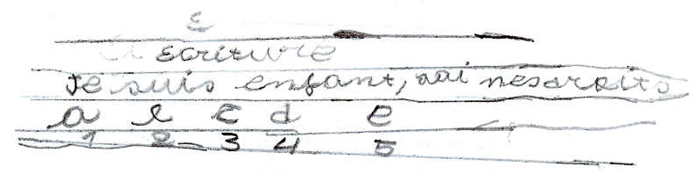 ε
écriture
Je suis enfant, j'ai mes droits
a l c d e
1 2 3 4 5